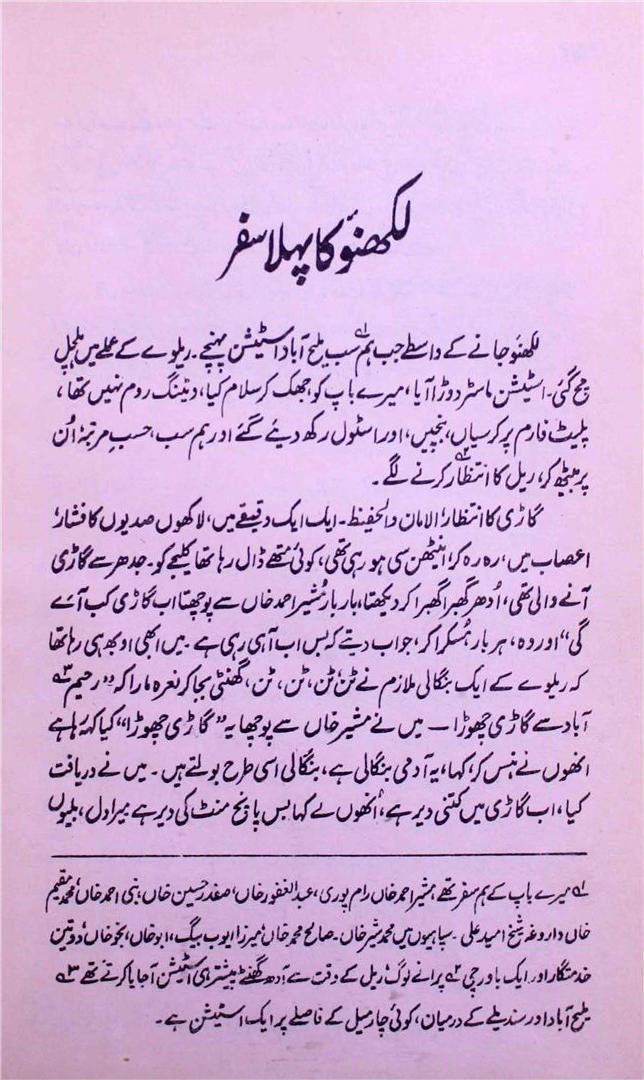 لکھنؤ کا پہلا سفر
لکھنؤ جانے کے واسطے جب ہم لہ سب ملیح آباد اسٹیشن پہنچے۔ ریلوے کے عملے میں ہلچل
مچ گئی۔ اسٹیشن ماسٹر دوڑا آیا، میرے باپ کو جھک کر سلام کیا، ویٹنگ روم نہیں تھا،
پلیٹ فارم پر کرسیاں، بنچیں، اور اسٹول رکھ دیئے گئے اور ہم سب، حسبِ مرتبہ اُن
پر بیٹھ کر، ریل کا انتظار ۲ کرنے لگے۔
گاڑی کا انتظار، الامان والحفیظ۔ ایک ایک دقیقے میں، لاکھوں صدیوں کا فشار،
اعصاب میں، رہ رہ کر، اینٹھن سی ہو رہی تھی، کوئی متھے ڈال رہا تھا کلیجے کو۔ جدھر سے گاڑی
آنے والی تھی، اُدھر گھبرا گھبرا کر دیکھتا، بار بار مُشیر احمد خاں سے پوچھتا اب گاڑی کب آے
گی“ اور وہ، ہر بار، مُسکرا کر، جواب دیتے کہ بس اب آہی رہی ہے۔ میں ابھی اوبھ ہی رہا تھا
کہ ریلوے کے ایک بنگالی ملازم نے ٹن، ٹن، ٹن، ٹن، گھنٹی بجا کر نعرہ مارا کہ ”رحیم ۳
آباد سے گاڑی چھوڑا — میں نے مشیر خاں سے پوچھا یہ ”گاڑی چھوڑا“ کیا کہہ رہا ہے
انھوں نے ہنس کر، کہا، یہ آدمی بنگالی ہے، بنگالی اسی طرح بولتے ہیں۔ میں نے دریافت
کیا، اب گاڑی میں کتنی دیر ہے، اُنھوں نے کہا بس پانچ منٹ کی دیر ہے میرا دل، بلیوں
لہ میرے باپ کے ہم سفر تھے، مشیر احمد خاں رام پوری، عبدالغفور خاں، صفدر حسین خاں، نبی احمد خاں، محمد مقیم
خاں داروغہ شیخ امید علی۔ سپاہیوں میں محمد شیر خاں۔ صالح محمد خاں، میرزا ایوب بیگ، ابو خاں، بخو خاں، دو تین
خدمتگار اور ایک باورچی ۲ پرانے لوگ، ریل کے وقت سے آدھ گھنٹے پیشتر ہی اسٹیشن آ جایا کرتے تھے ۳
ملیح آباد اور سندیلے کے درمیان، کوئی چار میل کے فاصلے پر ایک اسٹیشن ہے۔